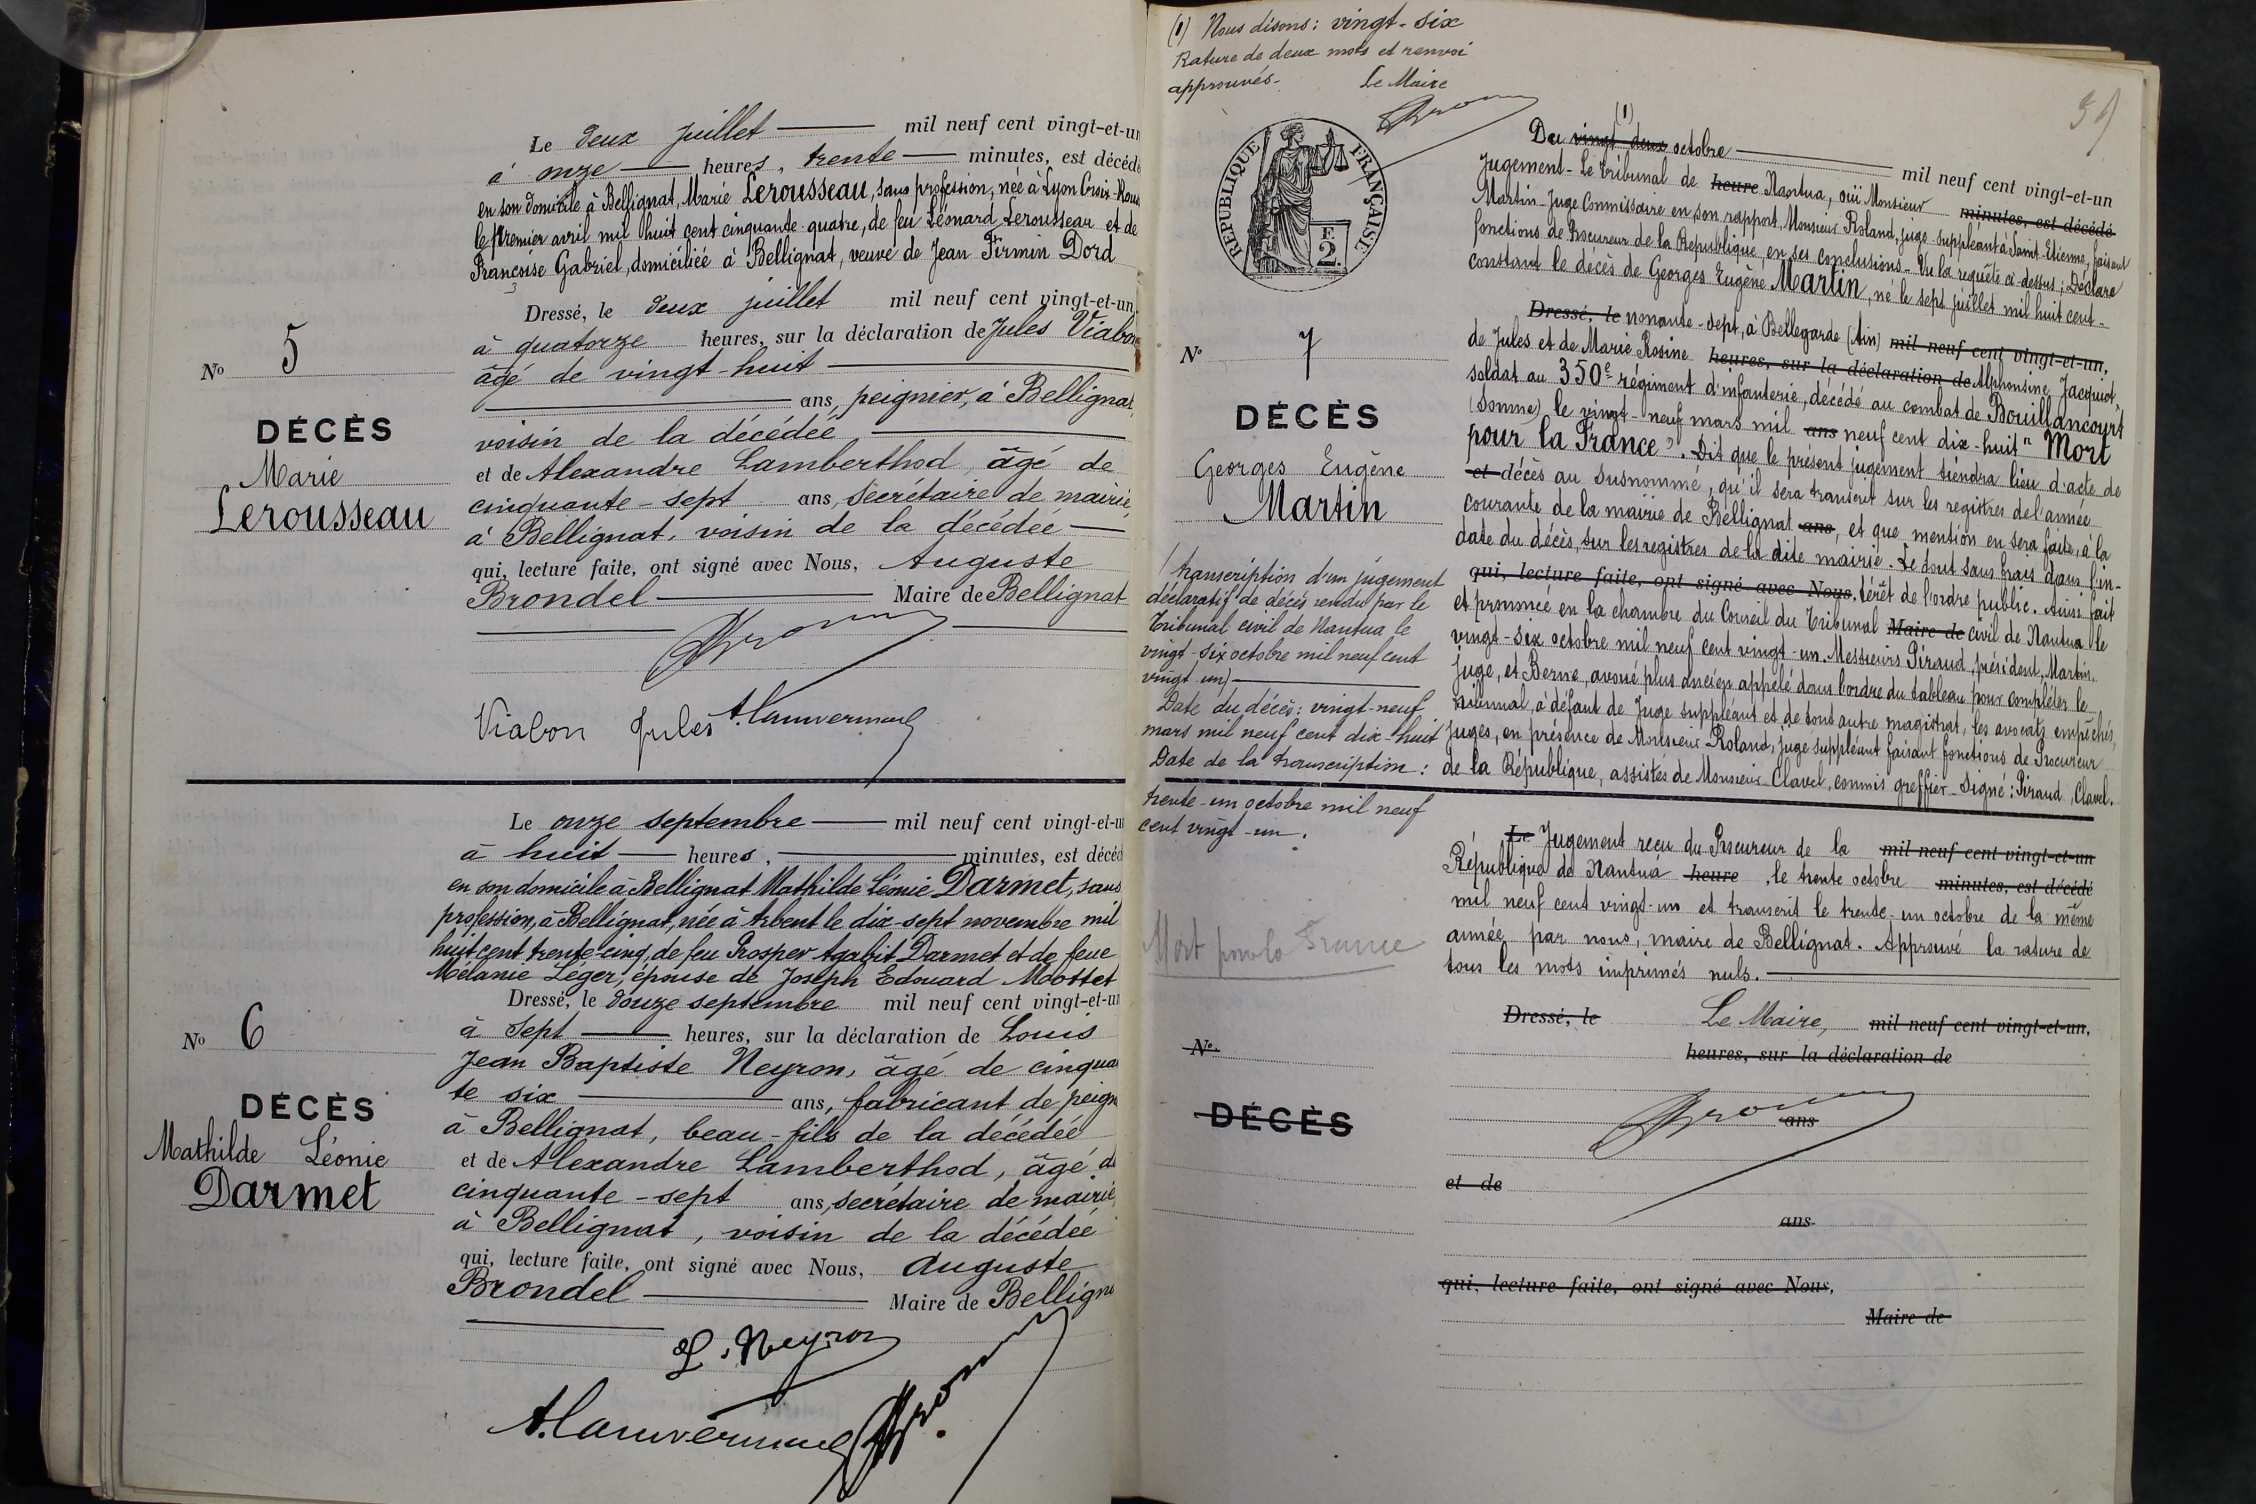 Le deux juillet mil neuf cent vingt-et-un
à onze heures, trente minutes, est décédé
en son domicile à Bellignat, Marie Lerousseau, sans profession, née à Lyon Croix-Rous
le premier avril mil huit cent cinquante-quatre, de feu Léonard Lerousseau et de
Françoise Gabriel, domiciliée à Bellignat, veuve de Jean Firmin Dord
Dressé, le deux juillet mil neuf cent vingt-et-un,
à quatorze heures, sur la déclaration de Jules Viabon
âgé de vingt-huit
ans, peignier, à Bellignat,
voisin de la décédée
et de Alexandre Lamberthod, âgé de
cinquante-sept ans, secrétaire de mairie,
à Bellignat, voisin de la décédée
qui, lecture faite, ont signé avec Nous, Auguste
Brondel Maire de Bellignat
Viabon Jules
No 5
DÉCÈS
Marie
Lerousseau
Le onze septembre mil neuf cent vingt-et-un
à huit heures, minutes, est décéd
en son domicile à Bellignat Mathilde Léonie Darmet, sans
profession, à Bellignat, née à Arbent le dix-sept novembre mil
huit cent trente-cinq, de feu Prosper Agabit Darmet et de feue
Mélanie Léger, épouse de Joseph Edouard Mottet
Dressé, le douze septembre mil neuf cent vingt-et-un
à sept heures, sur la déclaration de Louis
Jean Baptiste Neyron, âgé de cinquan
te six ans, fabricant de peign
à Bellignat, beau-fils de la décédée
et de Alexandre Lamberthod, âgé de
cinquante-sept ans, secrétaire de mairie,
à Bellignat, voisin de la décédée
qui, lecture faite, ont signé avec Nous, Auguste
Brondel Maire de Belligna
L. Neyron
No 6
DÉCÈS
Mathilde Léonie
Darmet
(1) Nous disons: vingt-six
Rature de deux mots et renvoi
approuvés.
Le Maire
RÉPUBLIQUE FRANÇAISE
F.
2.
(1)
Du vingt deux octobre mil neuf cent vingt-et-un
Jugement - Le Tribunal de heure Nantua, ouï Monsieur minutes, est décédé
Martin - Juge Commissaire en son rapport, Monsieur Roland, juge-suppléant à Saint-Etienne, faisant
fonctions de Procureur de la République en ses conclusions - Vu la requête ci-dessus; Déclare
constant le décès de Georges Eugène Martin, né le sept juillet mil huit cent-
Dressé, le nonante-sept, à Bellegarde (Ain) mil neuf cent vingt-et-un,
de Jules et de Marie Rosine heures, sur la déclaration de Alphonsine Jacquot,
soldat au 350e régiment d'infanterie, décédé au combat de Bouillancourt
(Somme) le vingt-neuf mars mil ans neuf cent dix-huit "Mort
pour la France". Dit que le présent jugement tiendra lieu d'acte de
et décès au susnommé, qu'il sera transcrit sur les registres de l'année
courante de la mairie de Bellignat ans, et que mention en sera faite, à la
date du décès, sur les registres de la dite mairie. Le tout sans frais dans l'in-
qui, lecture faite, ont signé avec Nous, térêt de l'ordre public. Ainsi fait
et prononcé en la chambre du Conseil du Tribunal Maire de civil de Nantua le
vingt-six octobre mil neuf cent vingt-un. Messieurs Piraud, président, Martin,
juge, et Berne, avoué plus ancien appelé dans l'ordre du tableau pour compléter le
tribunal, à défaut de Juge suppléant et de tout autre magistrat, les avocats empêchés,
Juges, en présence de Monsieur Roland, juge suppléant faisant fonctions de Procureur
de la République, assistés de Monsieur Clavel, commis greffier - Signé: Piraud, Clavel.
No 7
DÉCÈS
Georges Eugène
Martin
(Transcription d'un jugement
déclaratif de décès rendu par le
Tribunal civil de Nantua le
vingt-six octobre mil neuf cent
vingt un)
Date du décès: vingt-neuf
mars mil neuf cent dix-huit
Date de la transcription:
trente-un octobre mil neuf
cent vingt-un.
Mort pour la France
Le Jugement reçu du Procureur de la mil neuf cent vingt-et-un
République de Nantua heure, le trente octobre minutes, est décédé
mil neuf cent vingt-un et transcrit le trente-un octobre de la même
année par nous, maire de Bellignat. Approuvé la rature de
tous les mots imprimés nuls.
Dressé, le Le Maire, mil neuf cent vingt-et-un,
heures, sur la déclaration de
ans
et de
ans
qui, lecture faite, ont signé avec Nous,
Maire de
No.
DÉCÈS